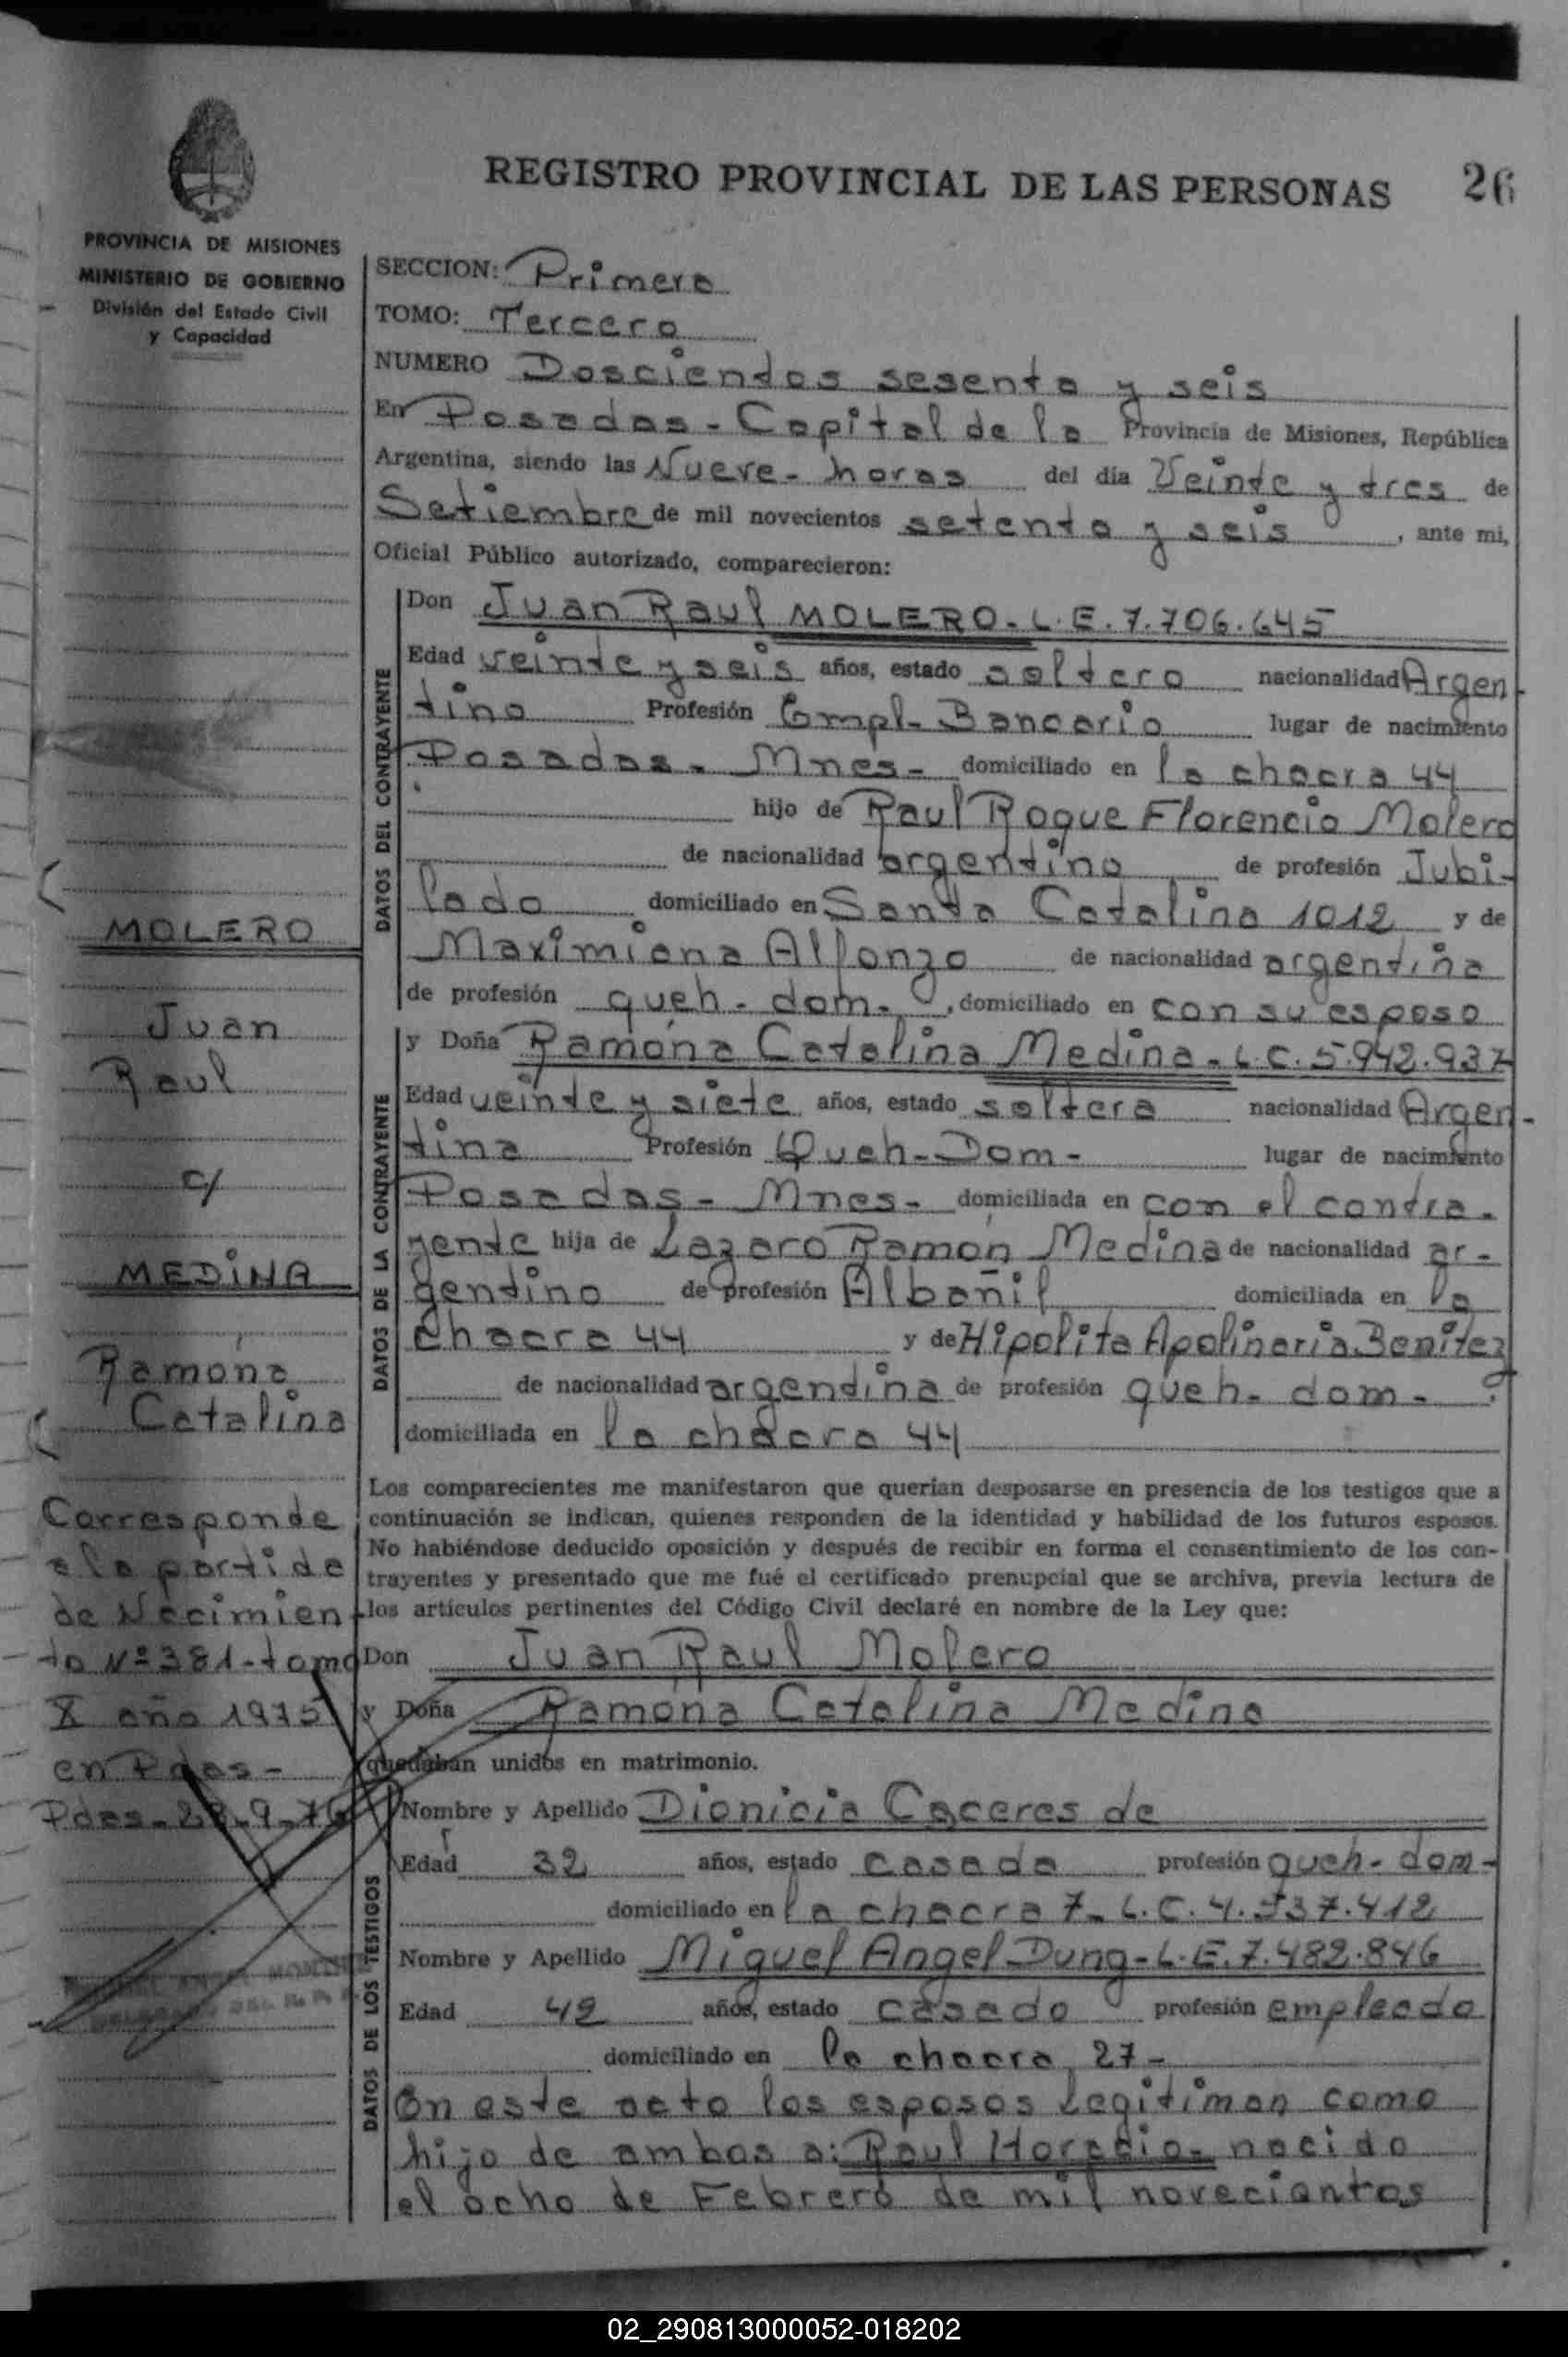 REGISTRO PROVINCIAL DE LAS PERSONAS 26
PROVINCIA DE MISIONES
MINISTERIO DE GOBIERNO
División del Estado Civil
y Capacidad
SECCION: Primera
TOMO: Tercero
NUMERO Doscientos sesenta y seis
En Posadas - Capital de la Provincia de Misiones, República
Argentina, siendo las Nueve - horas del día Veinte y tres de
Setiembre de mil novecientos setenta y seis, ante mi,
Oficial Público autorizado, comparecieron:
DATOS DEL CONTRAYENTE
Don Juan Raul MOLERO - L.E. 7.706.645
Edad veinte y seis años, estado soltero nacionalidad Argen-
tino Profesión Empl- Bancario lugar de nacimiento
Posadas - Mnes - domiciliado en la chacra 44
hijo de Raul Roque Florencio Molero
de nacionalidad argentino de profesión Jubi-
lado domiciliado en Santa Catalina 1012 y de
Maximiana Alfonzo de nacionalidad argentina
de profesión queh - dom -, domiciliado en con su esposo
DATOS DE LA CONTRAYENTE
y Doña Ramona Catalina Medina - L.C. 5.942.937
Edad veinte y siete años, estado soltera nacionalidad Argen-
tina Profesión Queh - Dom - lugar de nacimiento
Posadas - Mnes - domiciliada en con el contra-
yente hija de Lazaro Ramón Medina de nacionalidad ar-
gentino de profesión Albañil domiciliada en la
chacra 44 y de Hipolita Apolinaria Benitez
de nacionalidad argentina de profesión queh - dom -
domiciliada en la chacra 44
Los comparecientes me manifestaron que querían desposarse en presencia de los testigos que a
continuación se indican, quienes responden de la identidad y habilidad de los futuros esposos.
No habiéndose deducido oposición y después de recibir en forma el consentimiento de los con-
trayentes y presentado que me fué el certificado prenupcial que se archiva, previa lectura de
los artículos pertinentes del Código Civil declaré en nombre de la Ley que:
Don Juan Raul Molero
y Doña Ramona Catalina Medina
quedaban unidos en matrimonio.
DATOS DE LOS TESTIGOS
Nombre y Apellido Dionicia Caceres de
Edad 32 años, estado casada profesión queh - dom -
domiciliado en la chacra 7 - L.C. 4.537.412
Nombre y Apellido Miguel Angel Dung - L.E. 7.482.846
Edad 42 años, estado casado profesión empleado
domiciliado en la chacra 27 -
En este acto los esposos Legitiman como
hijo de ambos a: Raul Horacio - nacido
el ocho de Febrero de mil novecientos
MOLERO
Juan
Raul
c/
MEDINA
Ramona
Catalina
Corresponde
a la partida
de Nacimien
to Nº 381 - tomo
X año 1975
en Pdas -
Pdas - 23-9-76
02_290813000052-018202